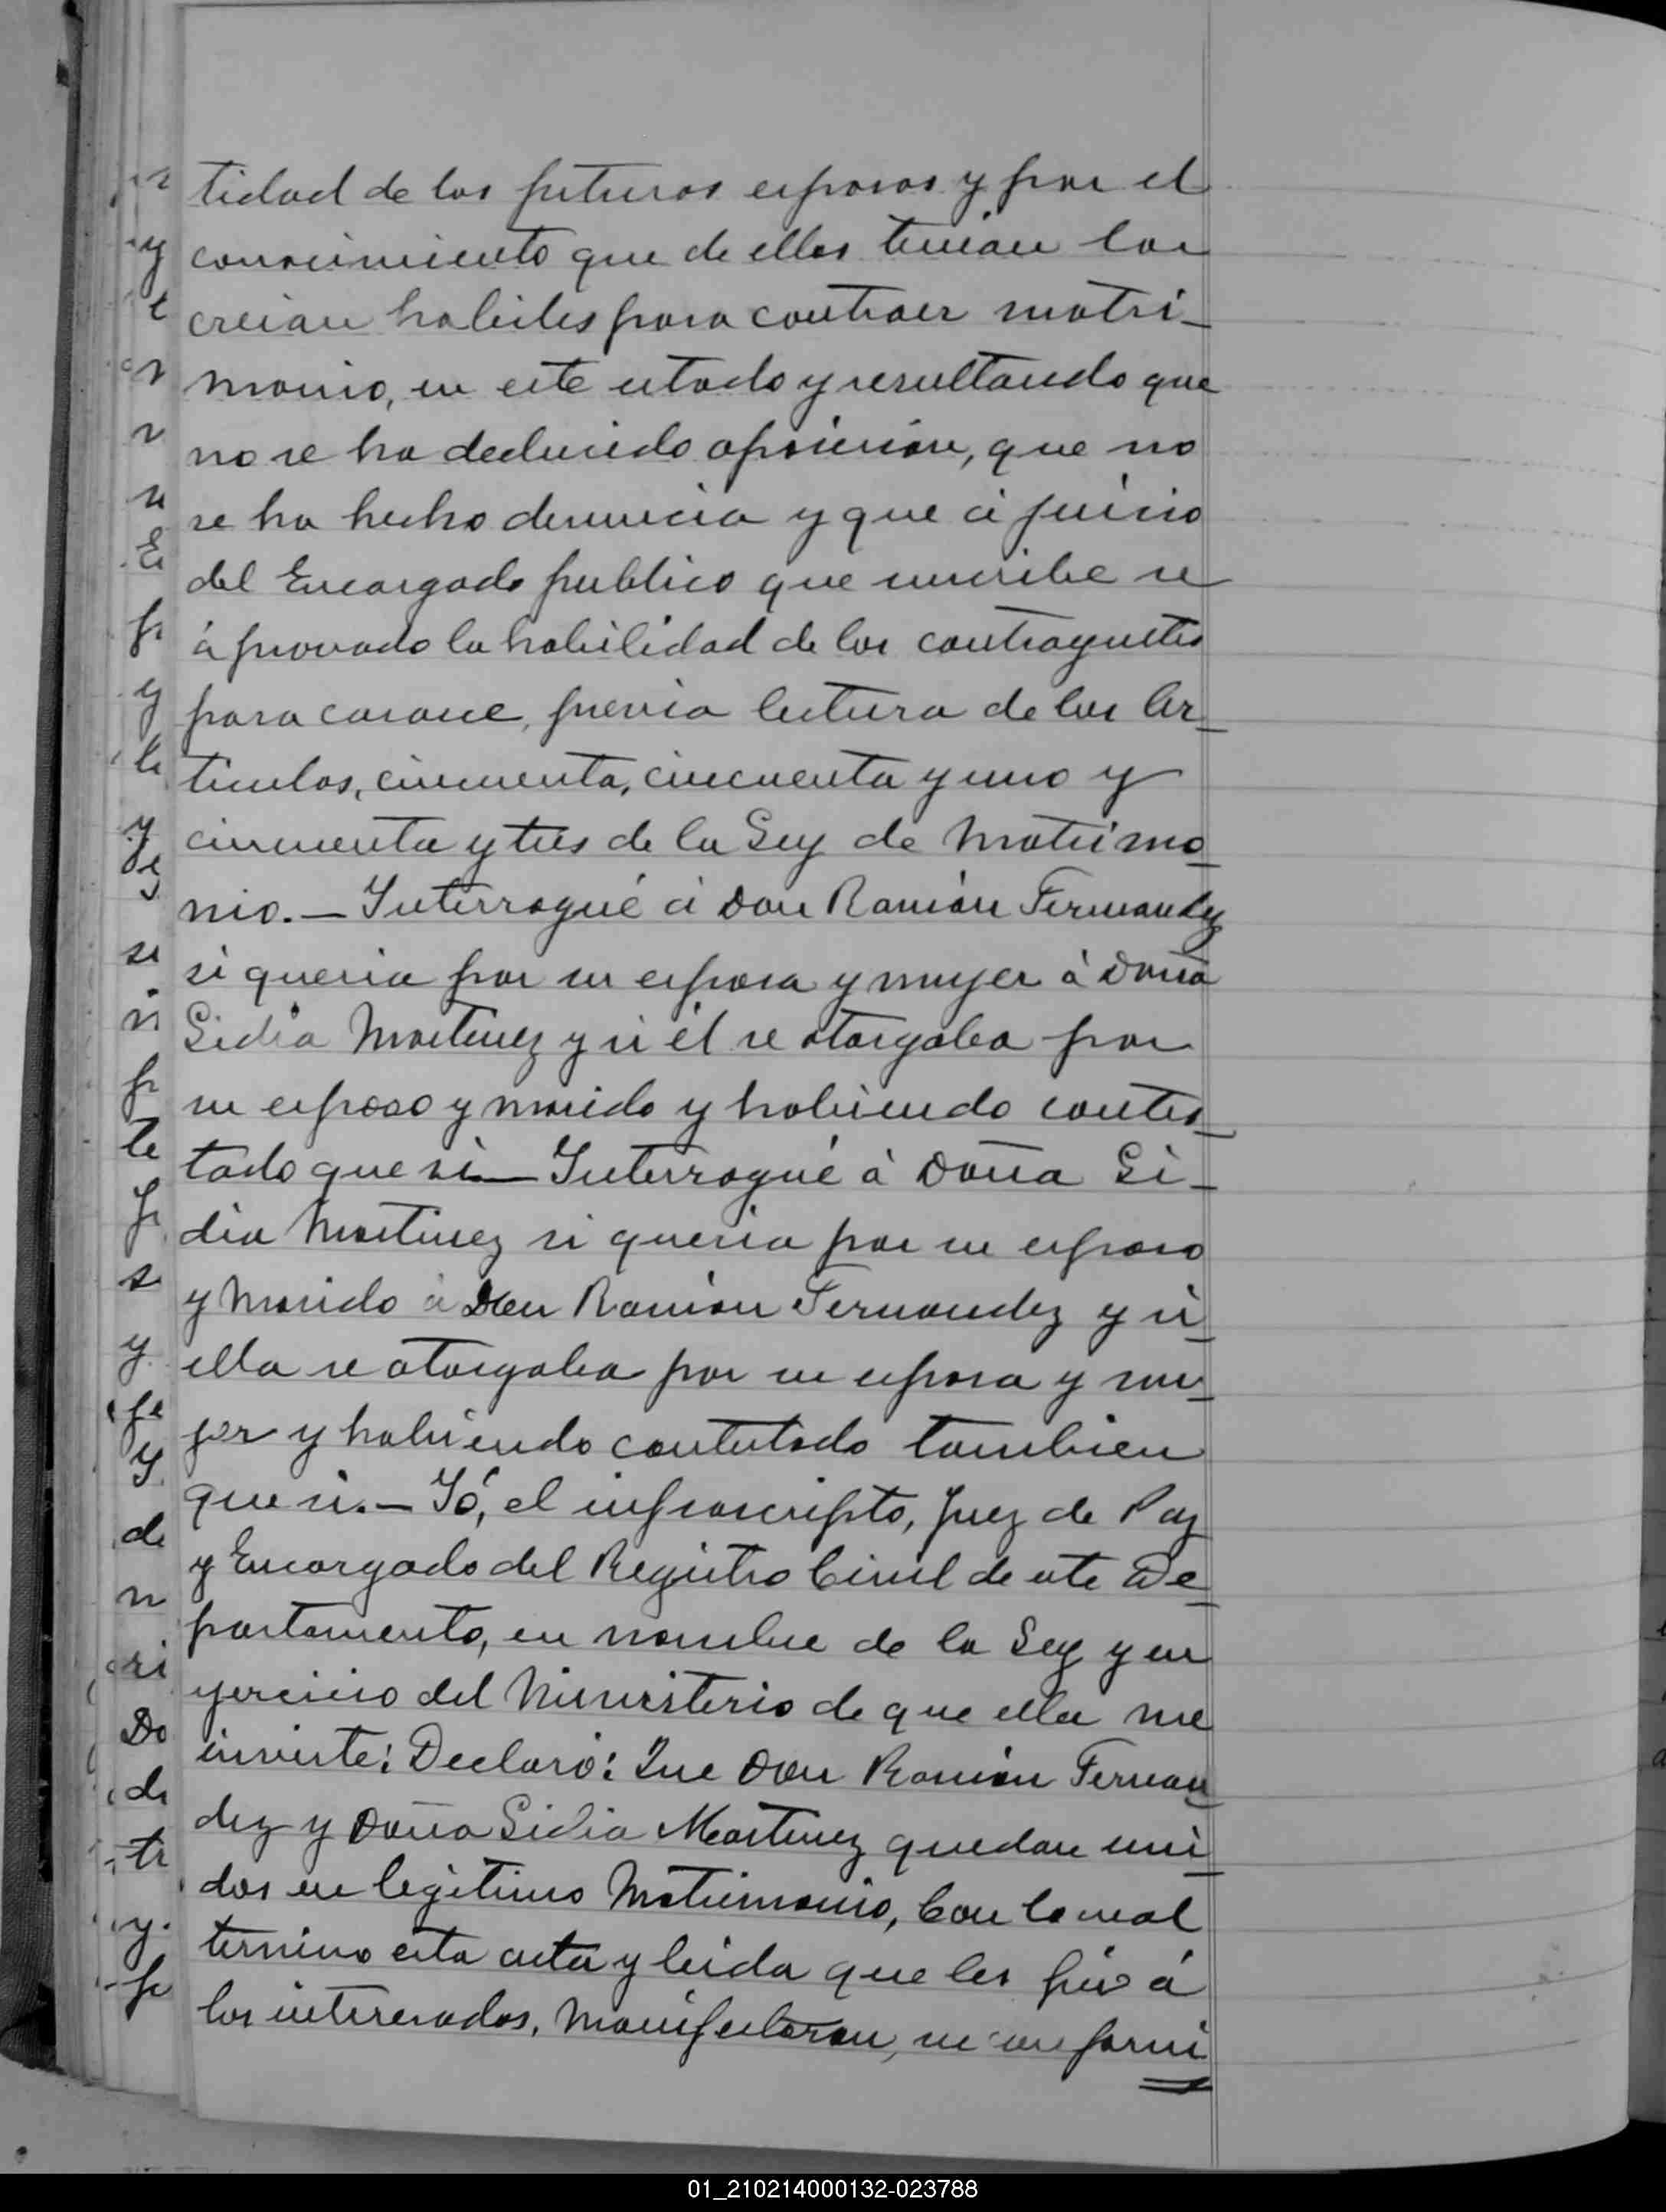 tidad de los futuros esposos y por el
conocimiento que de ellos tenian los
creian habiles para contraer matri-
monio, en este estado y resultando que
no se ha deducido oposición, que no
se ha hecho denuncia y que á juicio
del Encargado publico que suscribe se
á provado la habilidad de los contrayentes
para casarse, previa lectura de los Ar-
ticulos, cincuenta, cincuenta y uno y
cincuenta y tres de la Ley de Matrimo-
nio. — Interrogué á Don Ramón Fernandez
si queria por su esposa y mujer á Doña
Lidia Martinez y si él se otorgaba por
su esposo y marido y habiendo contes-
tado que si — Interrogué á Doña Li-
dia Martinez si queria por su esposo
y marido á Don Ramón Fernandez y si
ella se otorgaba por su esposa y mu-
jer y habiendo contestado tambien
que si. — Yó, el infrascripto, Juez de Paz
y Encargado del Registro Civil de este De-
partamento, en nombre de la Ley y en
yercicio del Ministerio de que ella me
inviste: Declaro: Que Don Ramón Fernan-
dez y Doña Lidia Martinez quedan uni-
dos en legitimo Matrimonio, Con lo cual
termino esta acta y leida que les fué á
los interesados, manifestaron, su conformi
01_210214000132-023788